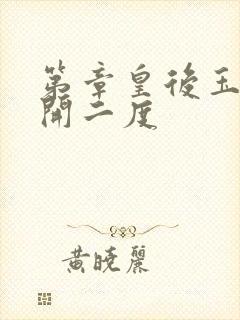 第章皇後玉
開二度
黃曉麗